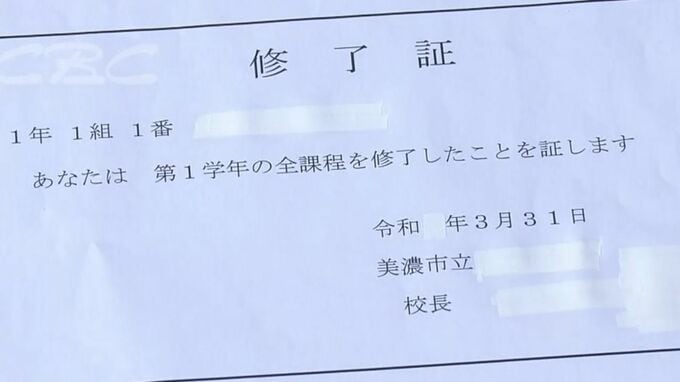 CBC
修了証
1年 1組 1番
あなたは 第1学年の全課程を修了したことを証します
令和 年3月31日
美濃市立
校長